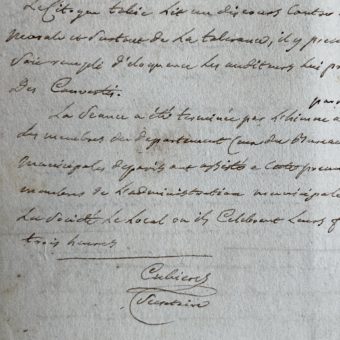 Le Citoyen tobie lit un discours Contre
morale et surtout de La tolerance, il y pre
Soin remplé d'eloquence les auditeurs lui pr
Des Convertis.
par
La Seance a été terminée par L'himne a
des membres du departement Cun du Bureau
municipales de paris ont assisté a Cette prem
membres de L'administration municipale
La Société Le Local ou ils Celebrent Leurs f
trois heures
Cubieres
Secretaire